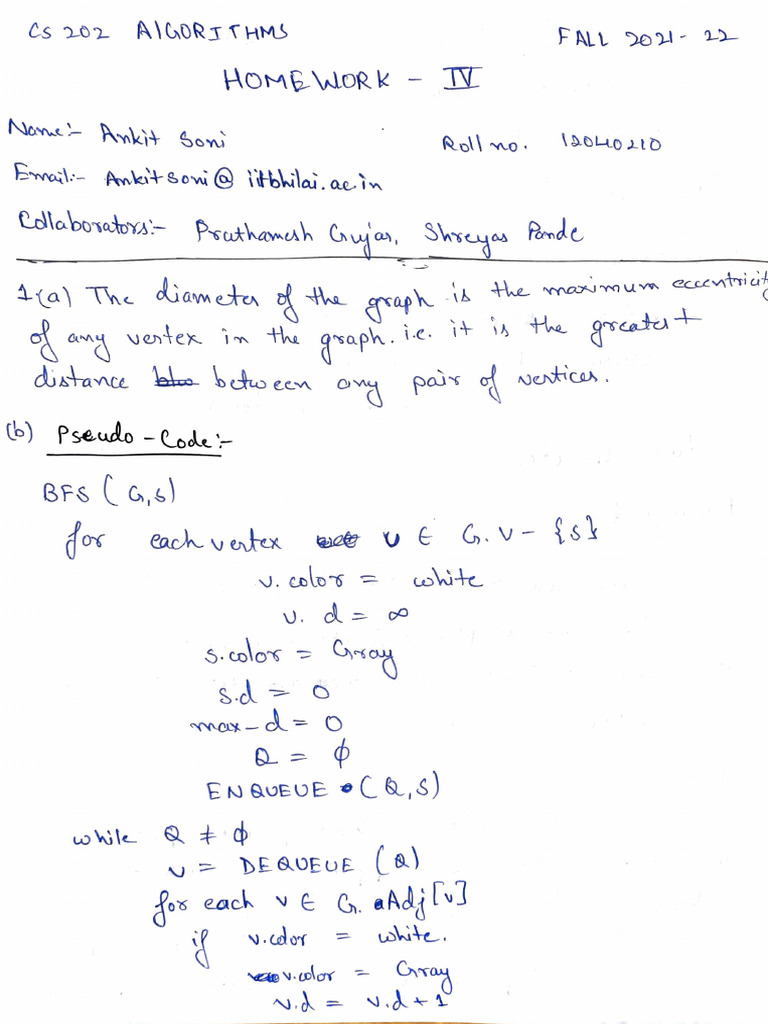 CS 202 ALGORITHMS FALL 2021-22
HOMEWORK - IV
Name:- Ankit Soni Roll no. 12040210
Email:- Ankitsoni@iitbhilai.ac.in
Collaborators:- Prathamesh Gujar, Shreyas Pande
1(a) The diameter of the graph is the maximum eccentricity
of any vertex in the graph. i.e. it is the greatest
distance between any pair of vertices.
(b) Pseudo-Code:-
BFS (G,s)
for each vertex v ∈ G.V - {s}
v.color = white
v. d = ∞
s.color = Gray
s.d = 0
max-d = 0
Q = ϕ
ENQUEUE (Q,S)
while Q ≠ ϕ
v = DEQUEUE (Q)
for each v ∈ G. Adj[v]
if v.color = white.
v.color = Gray
v.d = v.d + 1